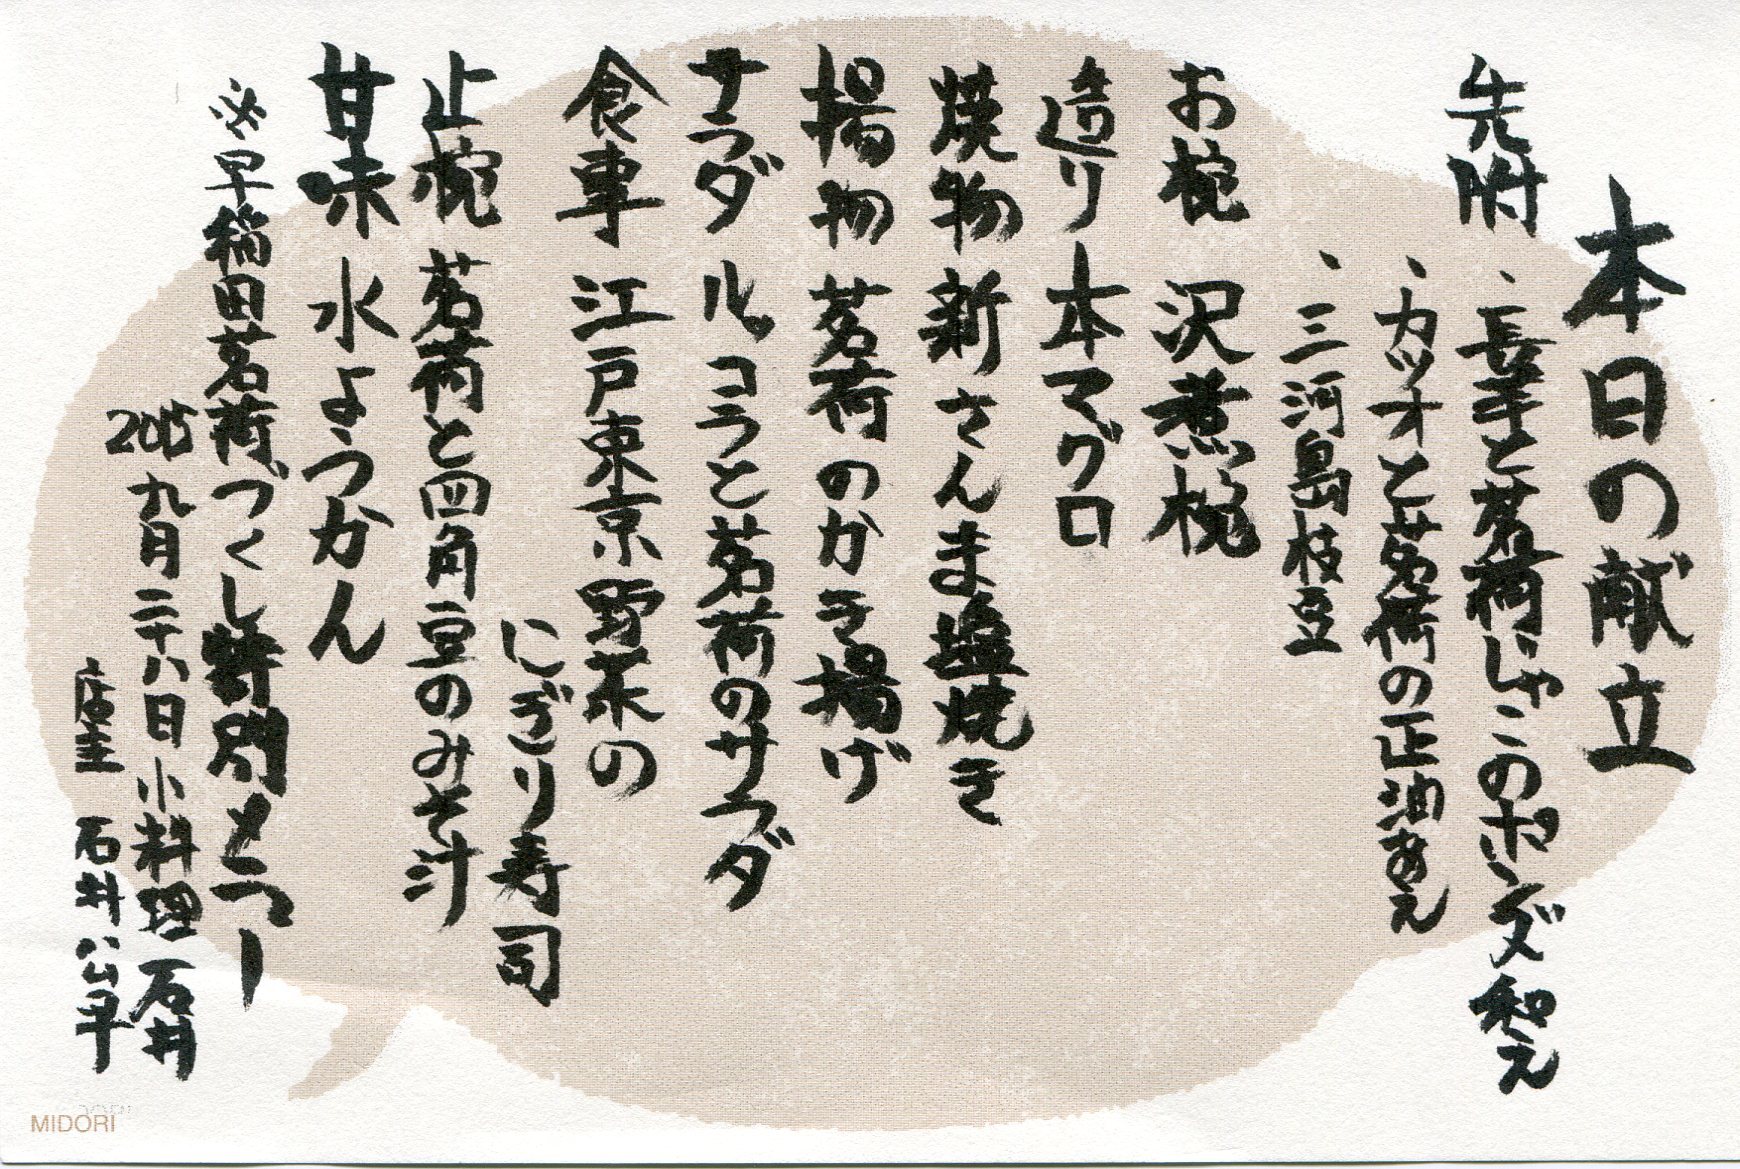 本日の献立
先附
・長芋と茗荷じゃこのポンズ和え
・カツオと茗荷の正油あえ
・三河島枝豆
お椀 沢煮椀
造り 本マグロ
焼物 新さんま塩焼き
揚物 茗荷のかき揚げ
サラダ ルッコラと茗荷のサラダ
食事 江戸東京野菜の
にぎり寿司
止椀 茗荷と四角豆のみそ汁
甘味 水ようかん
※早稲田茗荷づくし特別メニュー
2015 九月二十八日 小料理 石井
店主 石井公平
MIDORI